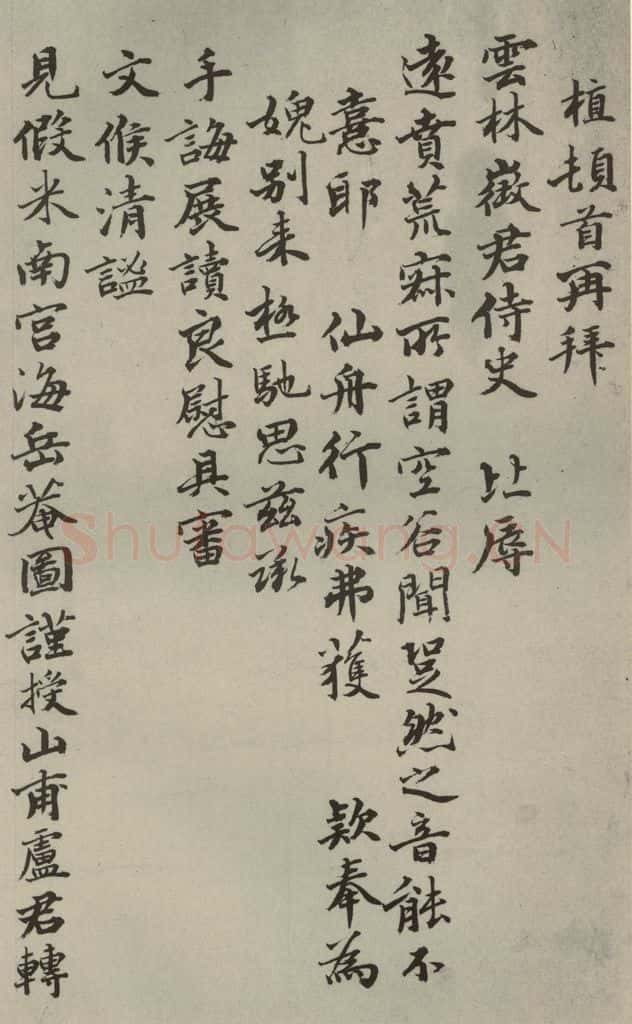 植頓首再拜
雲林徵君侍史 比辱
遠賁荒寐所謂空谷聞足然之音能不
憙耶 仙舟行疾弗獲 款奉為
媿别来極馳思茲承
手誨展讀良慰具審
文候清謐
見假米南宮海岳菴圖謹授山甫盧君轉
Shufawang.CN